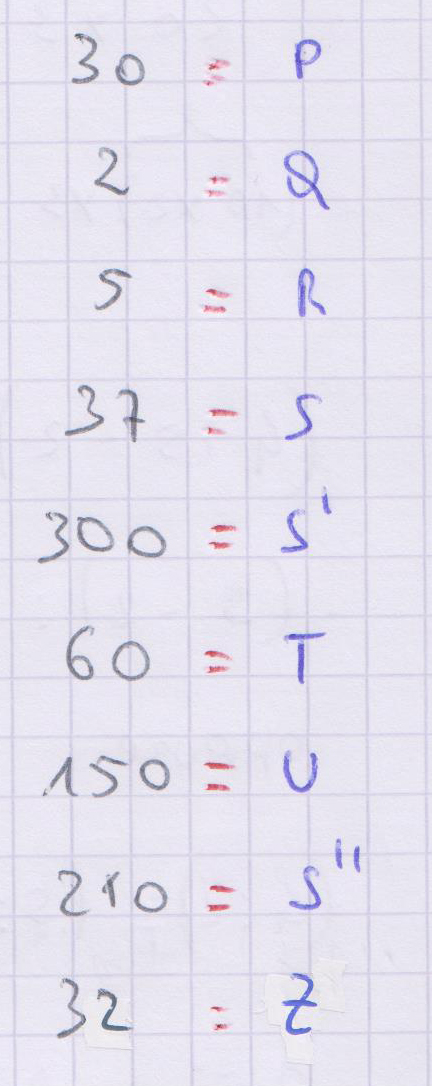 30 = P
2 = Q
5 = R
37 = S
300 = S'
60 = T
150 = U
210 = S''
32 = Z